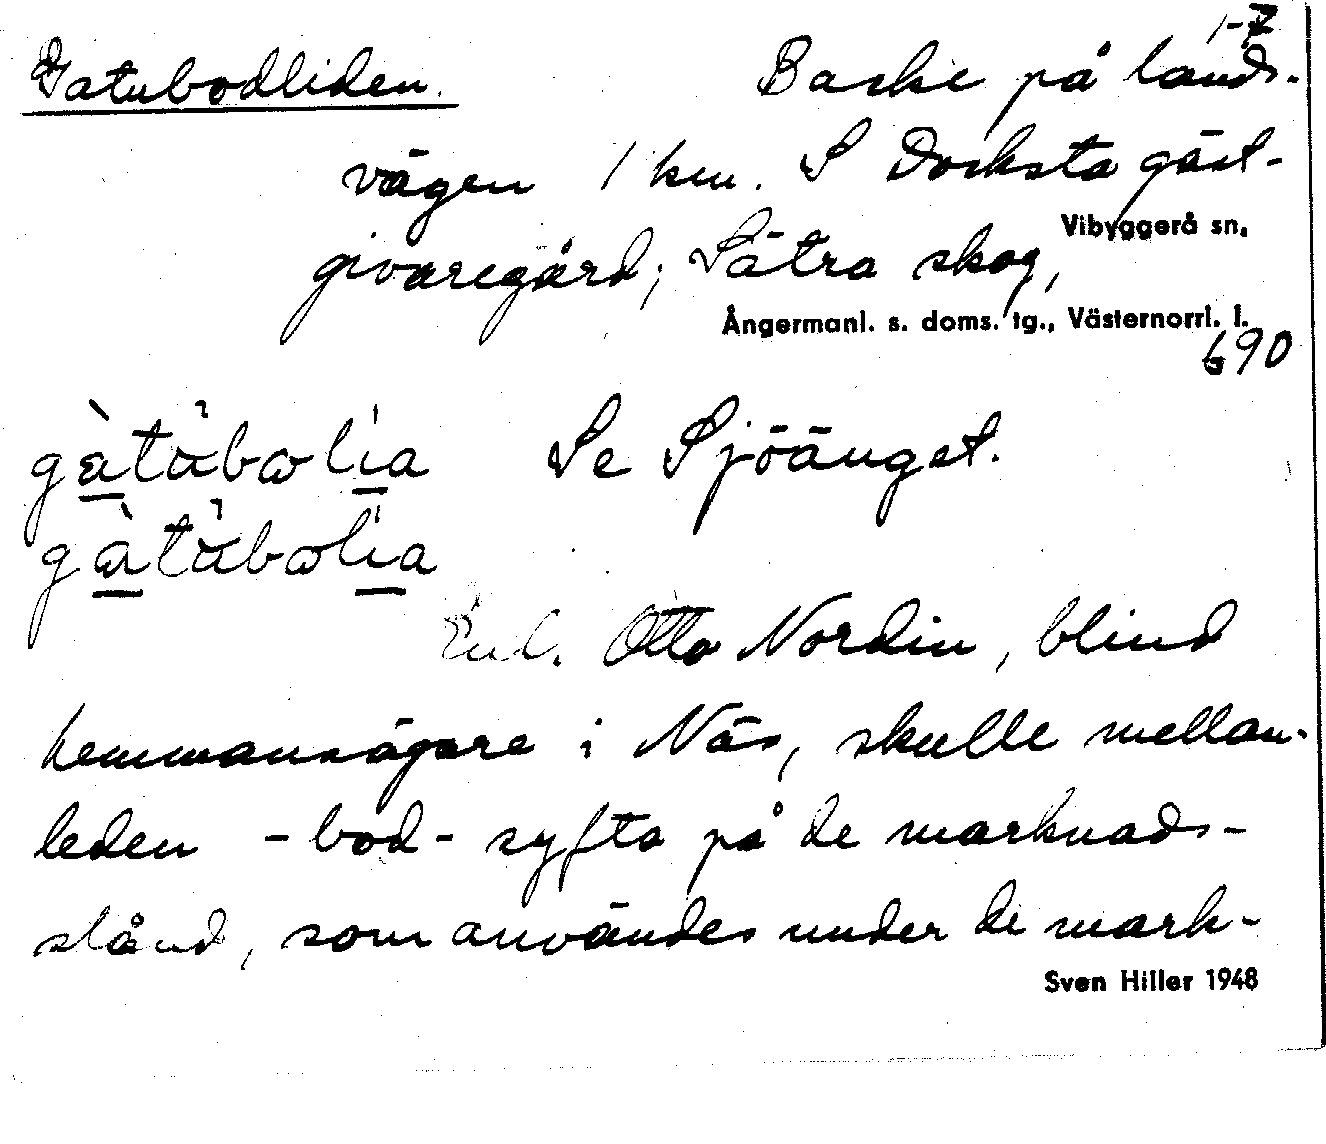 1-7
Gatubodliden. Backe på lands-
vägen 1 km. S Docksta gäst-
Vibyggerå sn,
givaregård; Sätra skog,
Ångermanl. s. doms. tg., Västernorrl. l.
690
gàtubolia Se Sjöänget.
gàtubolia
Enl. Otto Nordin, blind
hemmansägare i Näs, skulle mellan-
leden -bod- syfta på de marknads-
stånd, som användes under de mark-
Sven Hiller 1948